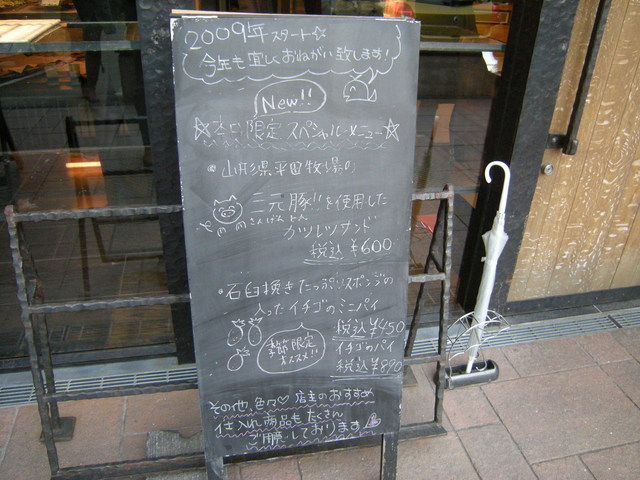 2009年スタート☆
今年も宜しくおねがい致します!
New!!
☆本日限定スペシャルメニュー☆
・山形県平田牧場の
三元豚!!を使用した
さんげんとん
カツレツサンド
税込¥600
・石臼挽きたっぷりスポンジの
入ったイチゴのミニパイ
税込¥450
季節限定
おススメ!!
イチゴのパイ
税込¥890
その他、色々♡店主のおすすめ
仕入れ商品もたくさん
ご用意しております